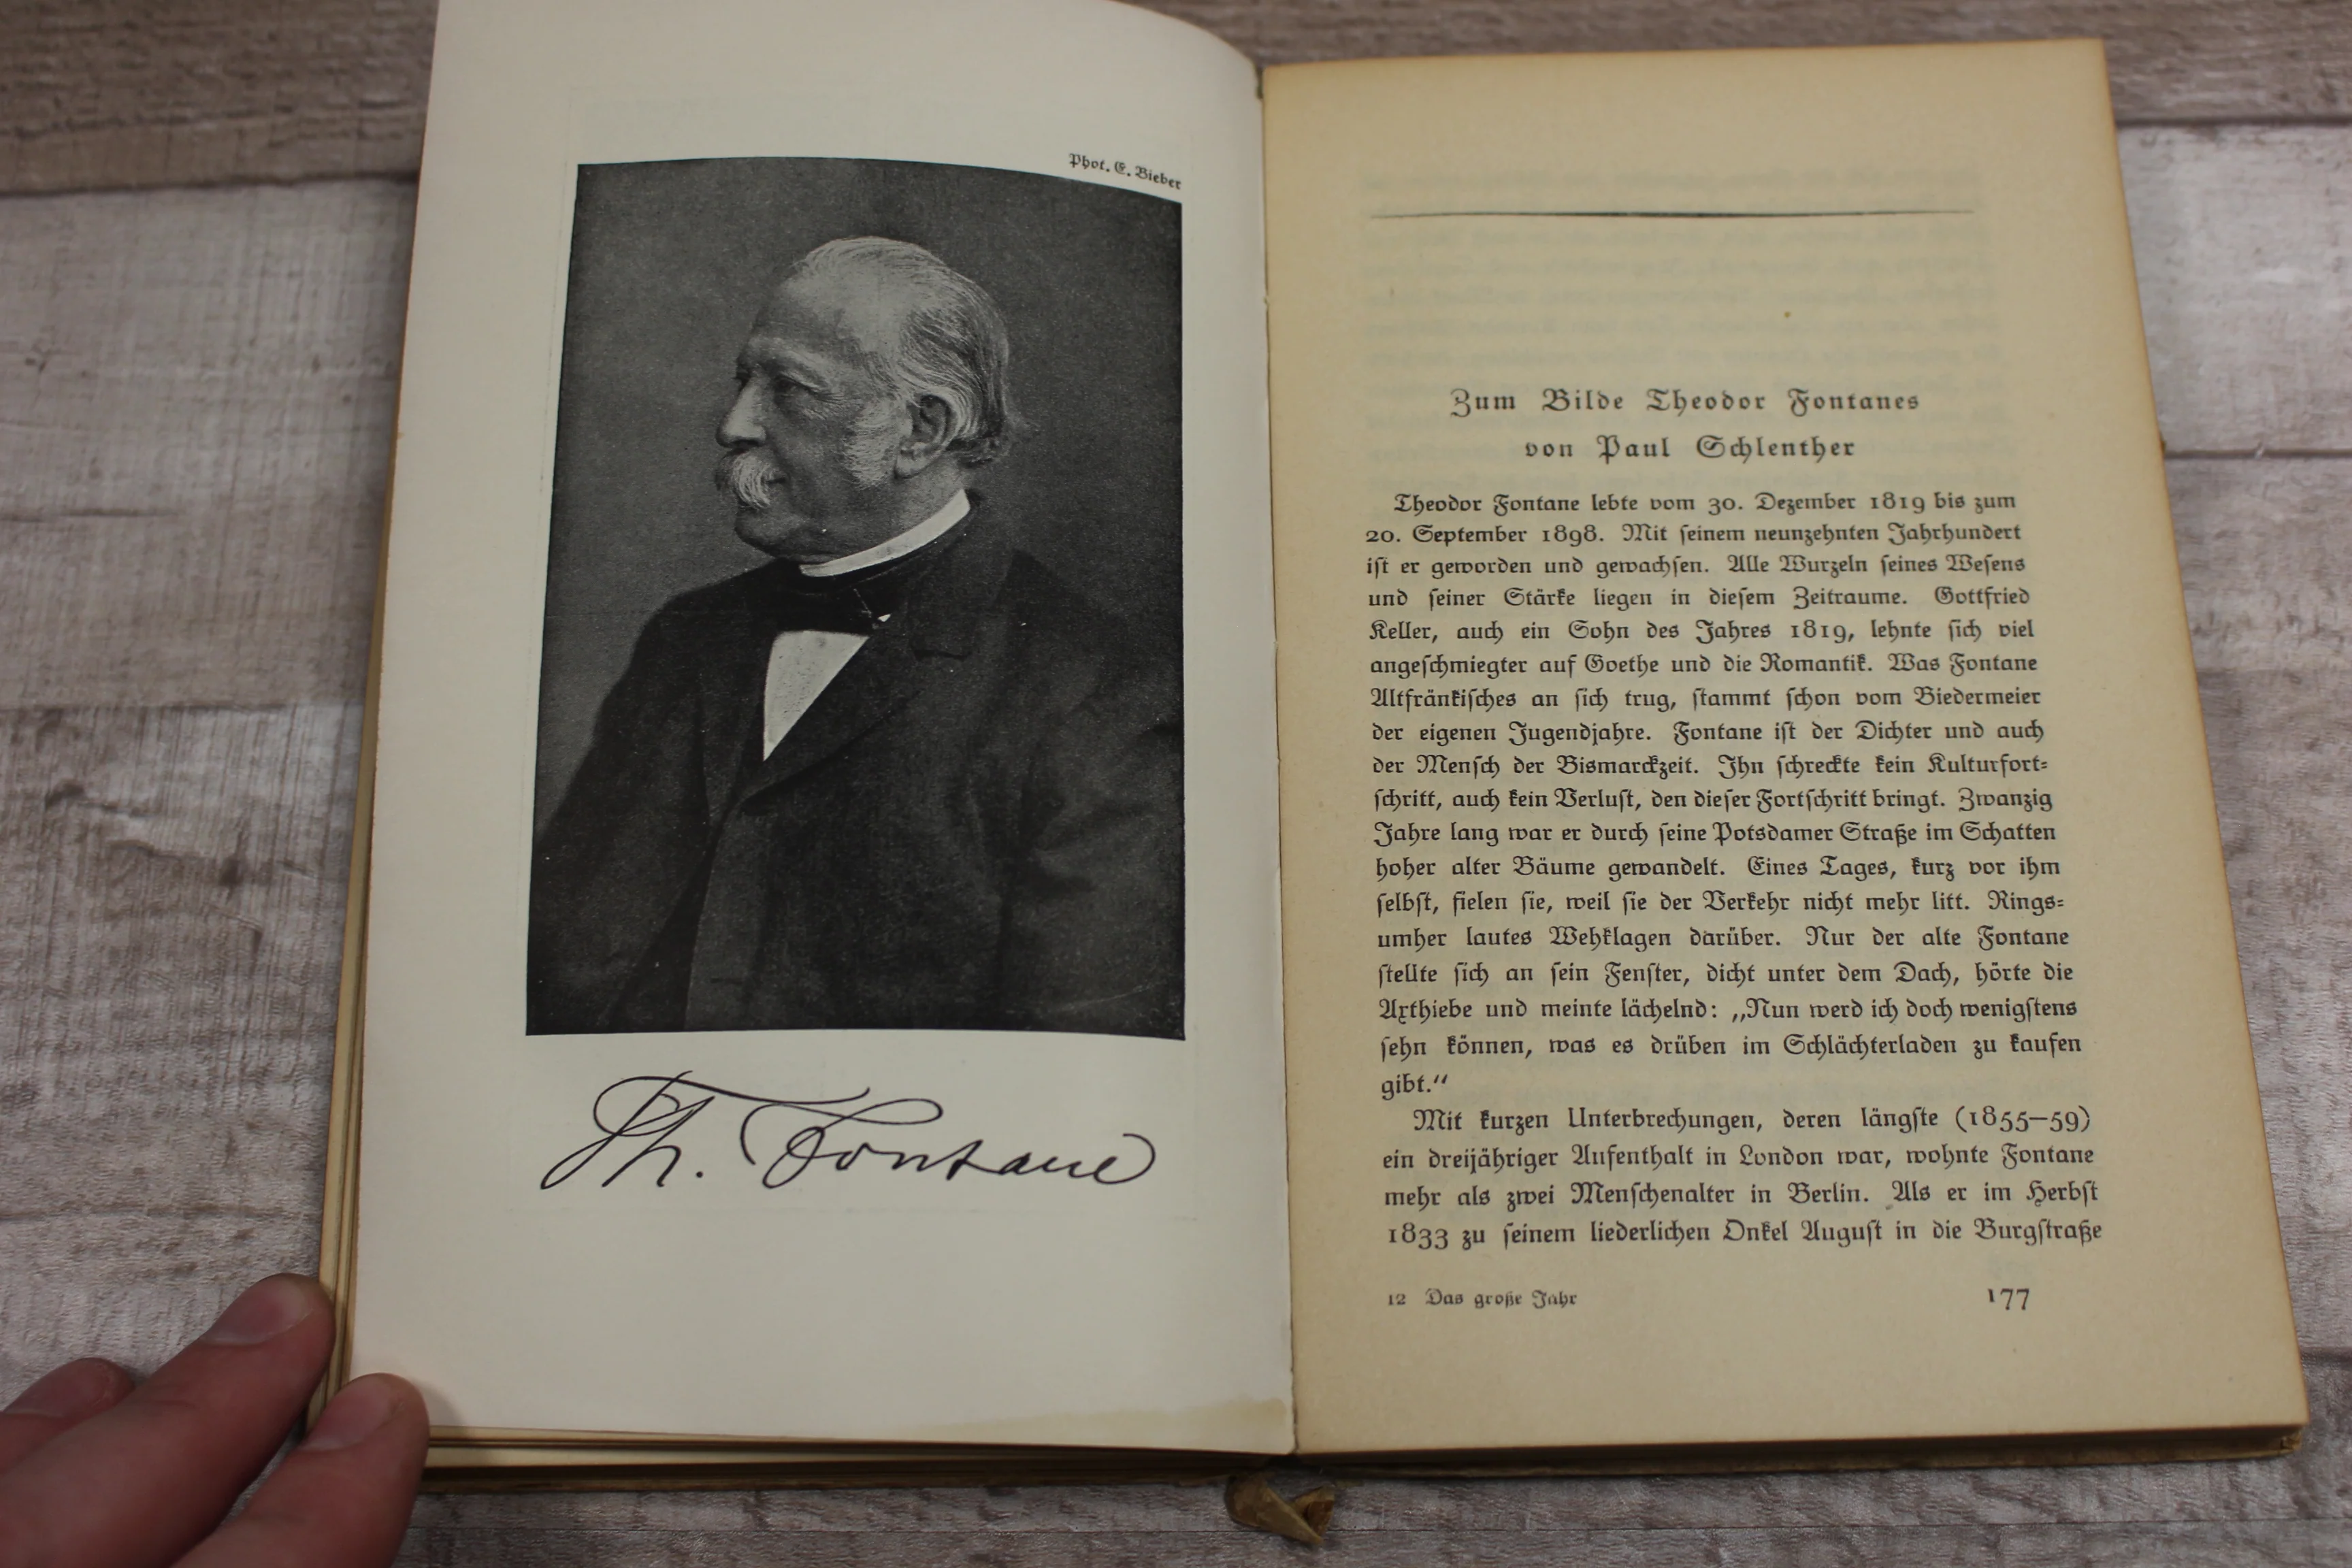 Phot. E. Bieber
Th. Fontane
Zum Bilde Theodor Fontanes
von Paul Schlenther
Theodor Fontane lebte vom 30. Dezember 1819 bis zum
20. September 1898. Mit ſeinem neunzehnten Jahrhundert
iſt er geworden und gewachſen. Alle Wurzeln ſeines Weſens
und ſeiner Stärke liegen in dieſem Zeitraume. Gottfried
Keller, auch ein Sohn des Jahres 1819, lehnte ſich viel
angeſchmiegter auf Goethe und die Romantik. Was Fontane
Altfränkiſches an ſich trug, ſtammt ſchon vom Biedermeier
der eigenen Jugendjahre. Fontane iſt der Dichter und auch
der Menſch der Bismarckzeit. Ihn ſchreckte kein Kulturfort⸗
ſchritt, auch kein Verluſt, den dieſer Fortſchritt bringt. Zwanzig
Jahre lang war er durch ſeine Potsdamer Straße im Schatten
hoher alter Bäume gewandelt. Eines Tages, kurz vor ihm
ſelbſt, fielen ſie, weil ſie der Verkehr nicht mehr litt. Rings⸗
umher lautes Wehklagen darüber. Nur der alte Fontane
ſtellte ſich an ſein Fenſter, dicht unter dem Dach, hörte die
Axthiebe und meinte lächelnd: „Nun werd ich doch wenigſtens
ſehn können, was es drüben im Schlächterladen zu kaufen
gibt.“
Mit kurzen Unterbrechungen, deren längſte (1855—59)
ein dreijähriger Aufenthalt in London war, wohnte Fontane
mehr als zwei Menſchenalter in Berlin. Als er im Herbſt
1833 zu ſeinem liederlichen Onkel Auguſt in die Burgſtraße
12 Das große Jahr 177